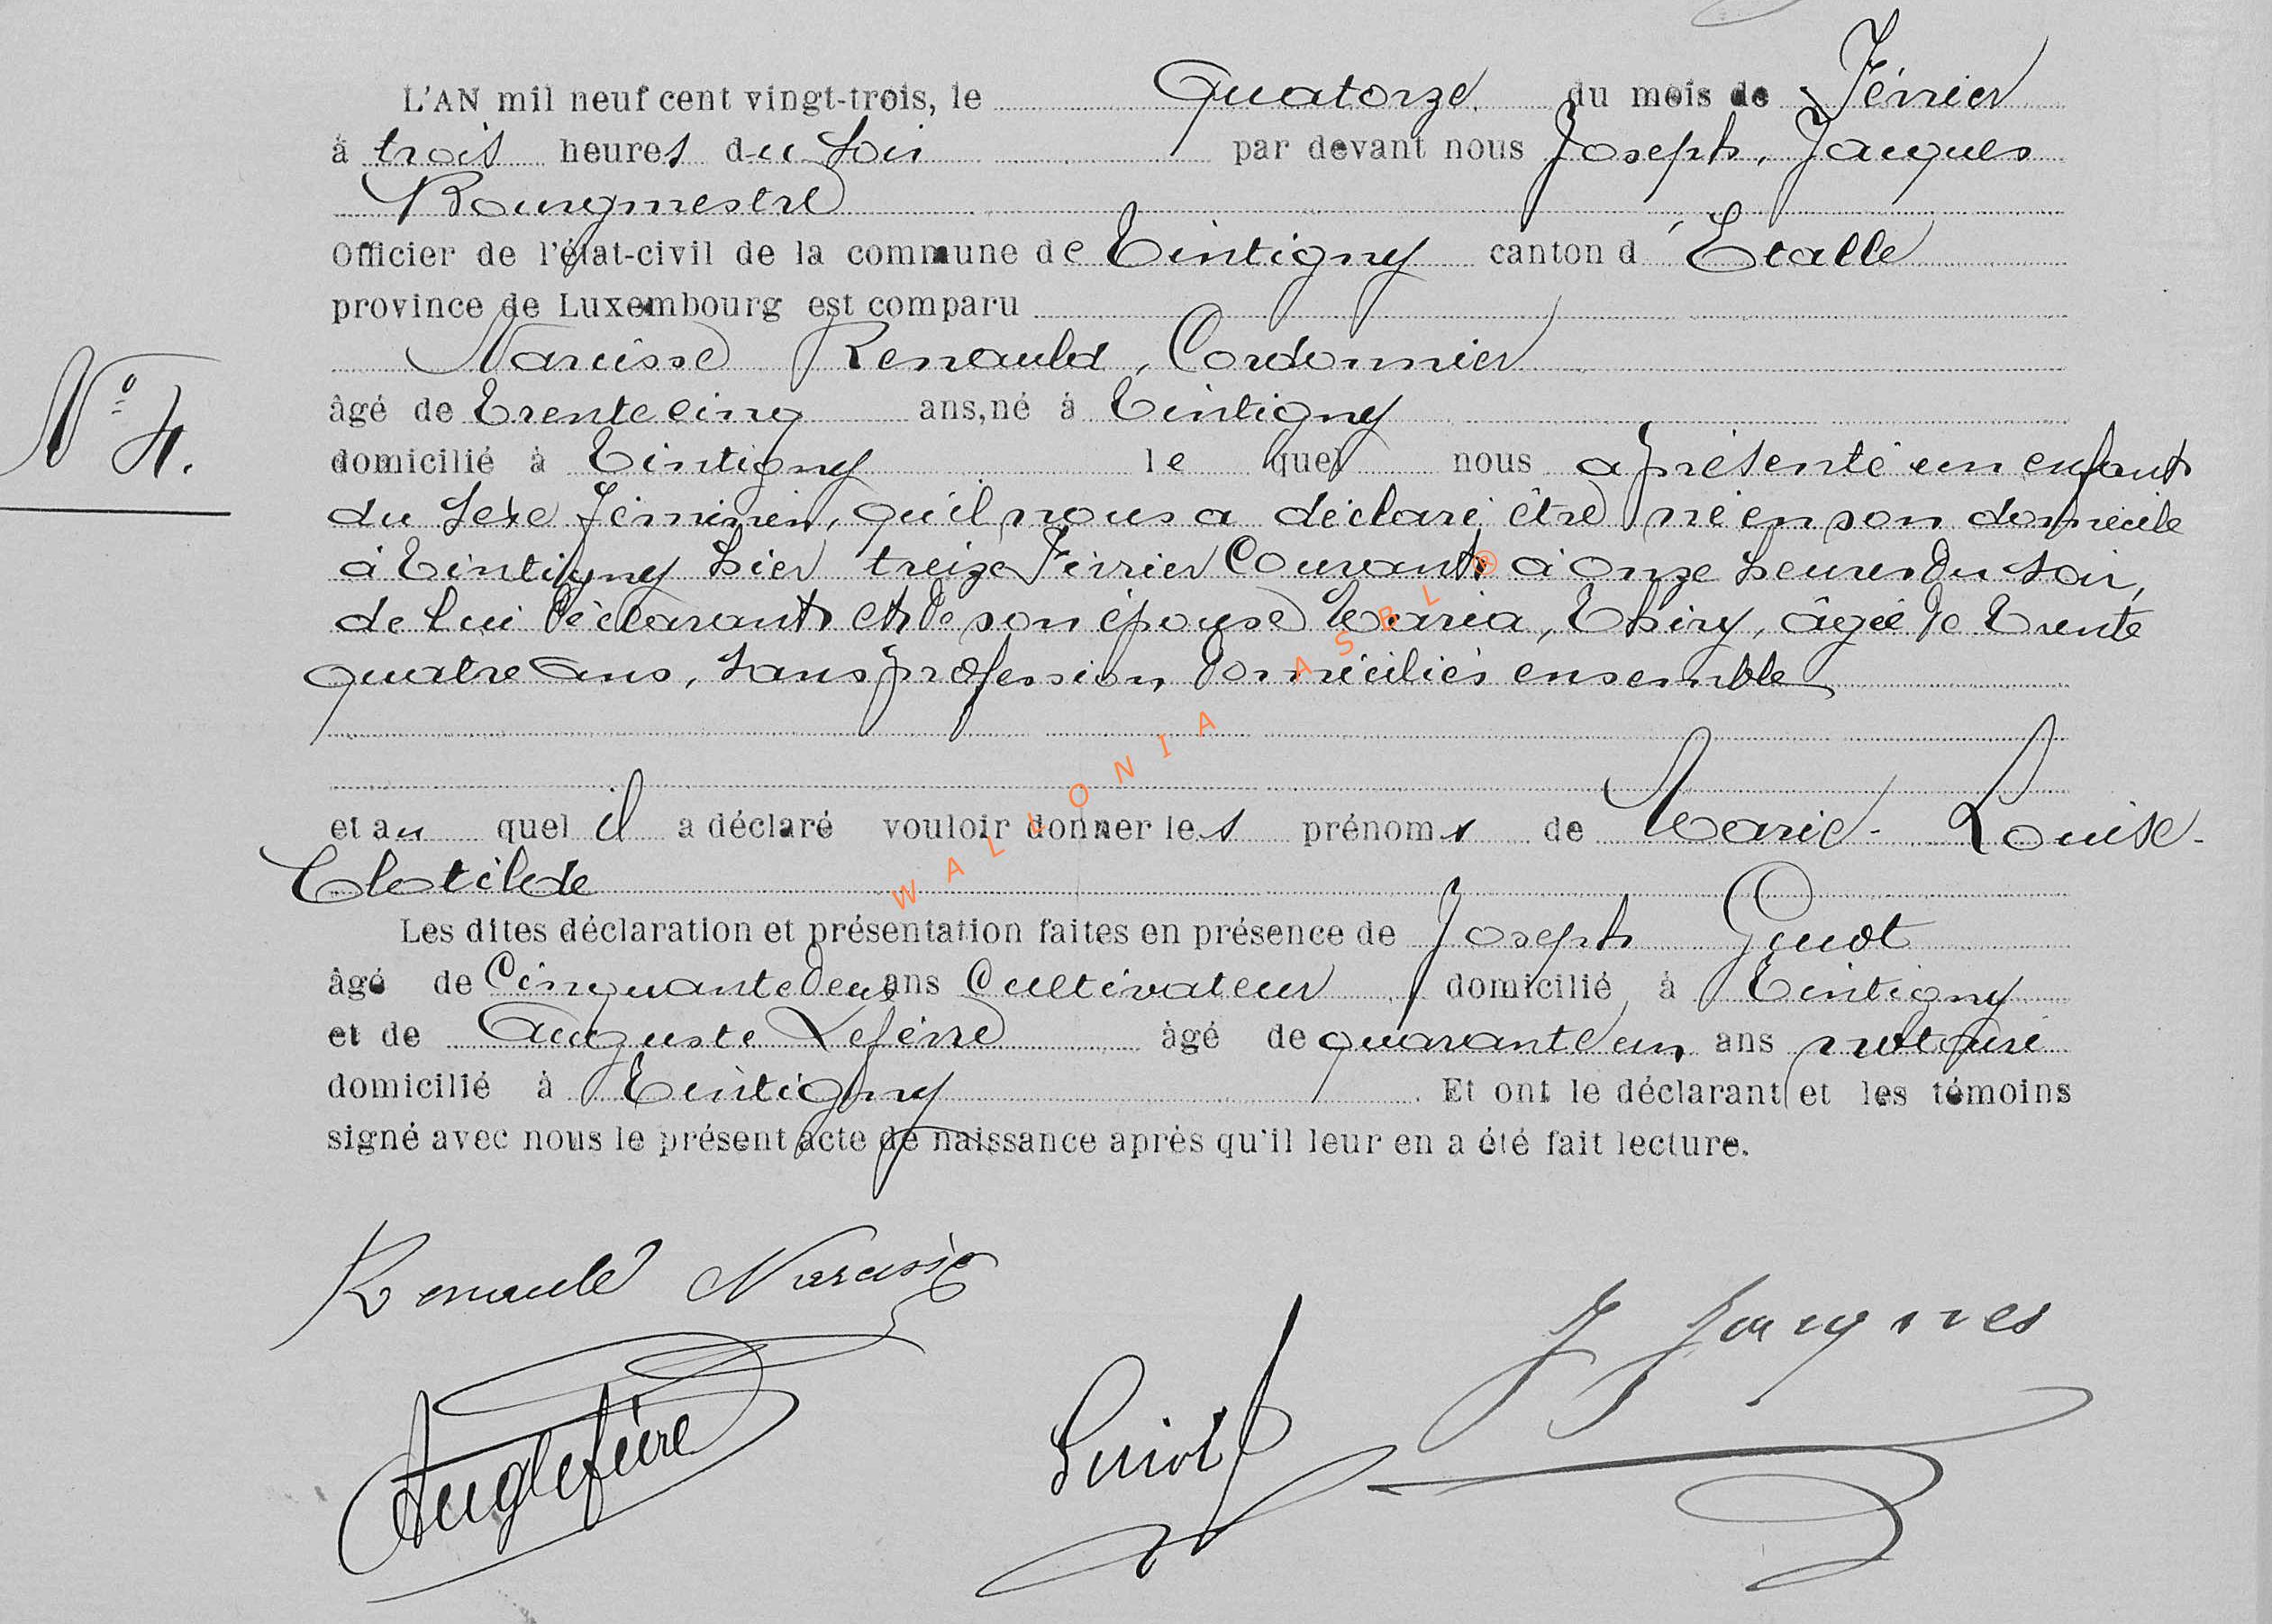 L'AN mil neuf cent vingt-trois, le Quatorze du mois de Février
à trois heures du soir par devant nous Joseph, Jacques
Bourgmestre
Officier de l'état-civil de la commune de Tintigny canton d'Etalle
province de Luxembourg est comparu
Narcisse Renauld, Cordonnier
N° 4.
âgé de Trente cinq ans, né à Tintigny
domicilié à Tintigny le quel nous a présenté un enfant
du sexe féminin, qu'il nous a déclaré être né en son domicile
à Tintigny hier treize Février Courant à onze heures du soir,
de lui déclarant et de son épouse Maria, Thiry, âgée de Trente
quatre ans, sans profession domiciliés ensemble
et au quel il a déclaré vouloir donner les prénoms de Marie - Louise -
Clotilde
Les dites déclaration et présentation faites en présence de Joseph Guiot
âgé de Cinquante deux ans Cultivateur domicilié à Tintigny
et de Auguste Lefèvre âgé de quarante un ans
domicilié à Tintigny Et ont le déclarant et les témoins
signé avec nous le présent acte de naissance après qu'il leur en a été fait lecture.
Renauld Narcisse
J Jacques
Aug Lefèvre
Guiot
WALLONIA ASBL ®